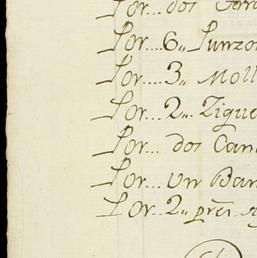 Por... dos
Por.... 6,, Punzo
Por.... 3,, Moll
Por... 2,,. Zigue
Por... dos Can
Por.... un Ban
Por.. 2,, pres